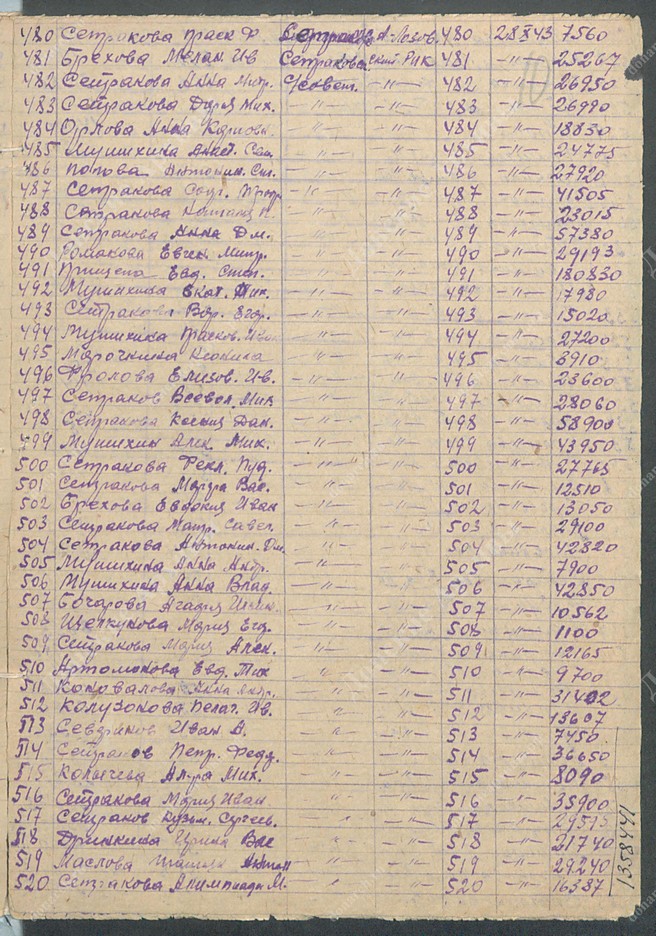 480 Сетракова Праск. Ф. Сетраков А-Лозов 480 28843 7560
481 Брехова Мелан. Ив. Сетраковс ский Рик 481 -"- 25267
482 Сетракова Анна Митр. Усовет. -"- 482 -"- 26950
483 Сетракова Дария Мих. -"- -"- 483 -"- 26990
484 Орлова Анна Карповн. -"- -"- 484 -"- 18830
485 Мушихина -"- -"- 485 -"- 24775
486 Попова Антонин. -"- -"- 486 -"- 27920
487 Сетракова -"- -"- 487 -"- 41505
488 Сетракова -"- -"- 488 -"- 23015
489 Сетракова Анна Дм. -"- -"- 489 -"- 57380
490 Ромакова Евген. Митр. -"- -"- 490 -"- 29193
491 Прищепа Евд. Степ. -"- -"- 491 -"- 180830
492 Мушихина Екат. Тих. -"- -"- 492 -"- 17980
493 Сетракова Вар. Егор. -"- -"- 493 -"- 15020
494 Мушихина Prасков. Иван -"- -"- 494 -"- 27200
495 Марочкина -"- -"- 495 -"- 8910
496 Фролова Елизов. Ив. -"- -"- 496 -"- 23600
497 Сетраков Всевол. Мих -"- -"- 497 -"- 28060
498 Сетракова Ксения Дан. -"- -"- 498 -"- 58900
499 Мушихин Алек. Мих. -"- -"- 499 -"- 43950
500 Сетракова Фекл. -"- -"- 500 -"- 27765
501 Сетракова Марфа Вас. -"- -"- 501 -"- 12510
502 Брехова Евдокия Иван -"- -"- 502 -"- 13050
503 Сетракова Матр. Савел. -"- -"- 503 -"- 29100
504 Сетракова Антонин. Дм. -"- -"- 504 -"- 42820
505 Мушихина Анна Андр. -"- -"- 505 -"- 7900
506 Мушихина Анна Влад. -"- -"- 506 -"- 42850
507 Бочарова Агафия -"- -"- 507 -"- 10562
508 Щелкунова Мария Егд. -"- -"- 508 -"- 1100
509 Сетракова Мария Алек. -"- -"- 509 -"- 12165
510 Артомонова Евд. Тих -"- -"- 510 -"- 9700
511 Коновалова Анна Андр. -"- -"- 511 -"- 31402
512 Колузонова Пелаг. Ив. -"- -"- 512 -"- 13607
513 Иван А. -"- -"- 513 -"- 7450
514 Сетраков Петр. Федр. -"- -"- 514 -"- 36650
515 Копычева Ал-ра Мих. -"- -"- 515 -"- 8090
516 Сетракова Мария Иван -"- -"- 516 -"- 35900
517 Сетраков Кузьм. Сергеев. -"- -"- 517 -"- 29515
518 Дринкина Ирина Вас -"- -"- 518 -"- 21740
519 Маслова -"- -"- 519 -"- 29240
520 Сетракова Алимпиада М. -"- -"- 520 -"- 16387
1358441